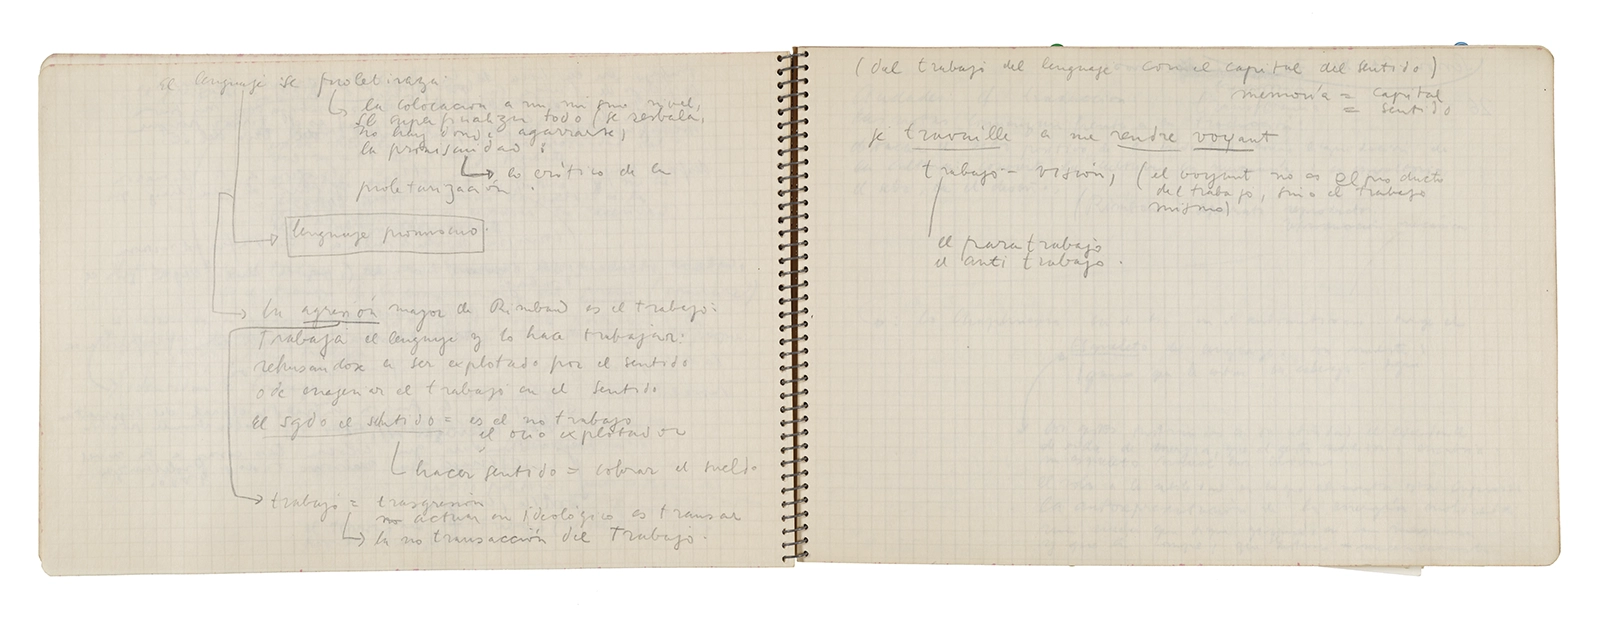 El lenguaje se proletariza:
la colocación a un mismo nivel,
el superficializar todo (se resbala,
no hay donde agarrarse,
la promiscuidad :
lo crítico de la
proletarización.
lenguaje promiscuo.
La agresión mayor de Rimbaud es el trabajo:
Trabaja el lenguaje y lo hace trabajar:
rehusándose a ser explotado por el sentido
o de enagenar el trabajo en el sentido
El sgdo el sentido = es el no trabajo
el ocio explotador
hacer sentido = cobrar el sueldo
trabajo = trasgresión
no actuar en ideológico es transar
la no transacción del Trabajo.
(del trabajo del lenguaje con el capital del sentido)
memoria = capital
= sentido
je travaille a me rendre voyant
trabajo - visión, (el voyant no es el producto
del trabajo, sino el trabajo
mismo)
el para trabajo
el anti trabajo.